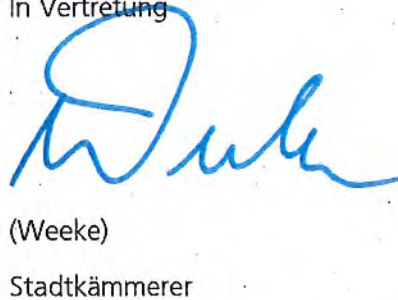 In Vertretung
(Weeke)
Stadtkämmerer